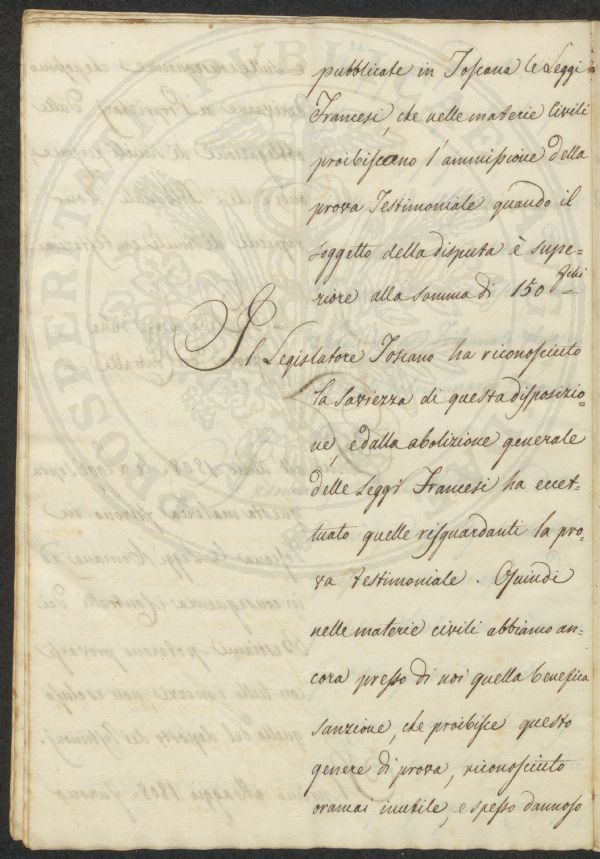 pubblicate in Toscana le Leggi
Francesi, che nelle materie Civili
proibiscano l'ammissione della
prova Testimoniale quando il
soggetto della disputa è supe=
riore alla somma di 150
Il Legislatore Toscano ha riconosciuto
la saviezza di questa disposizio=
ne e dalla abolizione generale
delle Leggi Francesi ha eccet=
tuato quelle risguardanti la pro=
va testimoniale. Quindi
nelle materie civili abbiamo an=
cora presso di noi quella benefica
sanzione, che proibisce questo
genere di prova, riconosciuto
oramai inutile, e spesso dannoso